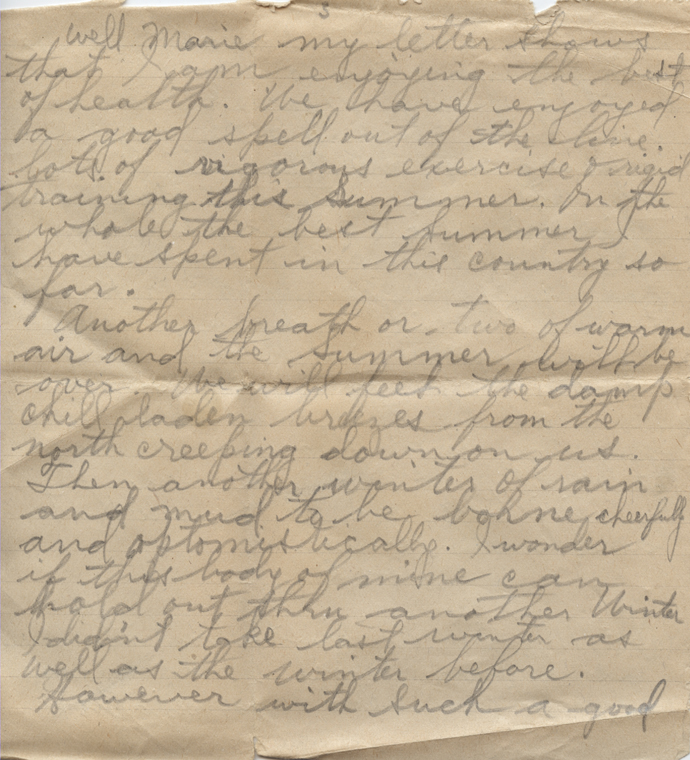 3
Well Marie my letter shows
that I am enjoying the best
of health. We have enjoyed
a good spell out of the line.
lots of vigorous exercise & rigid
training this summer. On the
whole the best summer I
have spent in this country so
far.
Another breath or two of warm
air and the summer will be
over. We will feel the damp
chill laden breezes from the
north creeping down on us.
Then another winter of rain
and mud to be borne cheerfully
and optomistically. I wonder
if this body of mine can
hold out thru another Winter
I didn't take last winter as
well as the winter before.
However with such a good